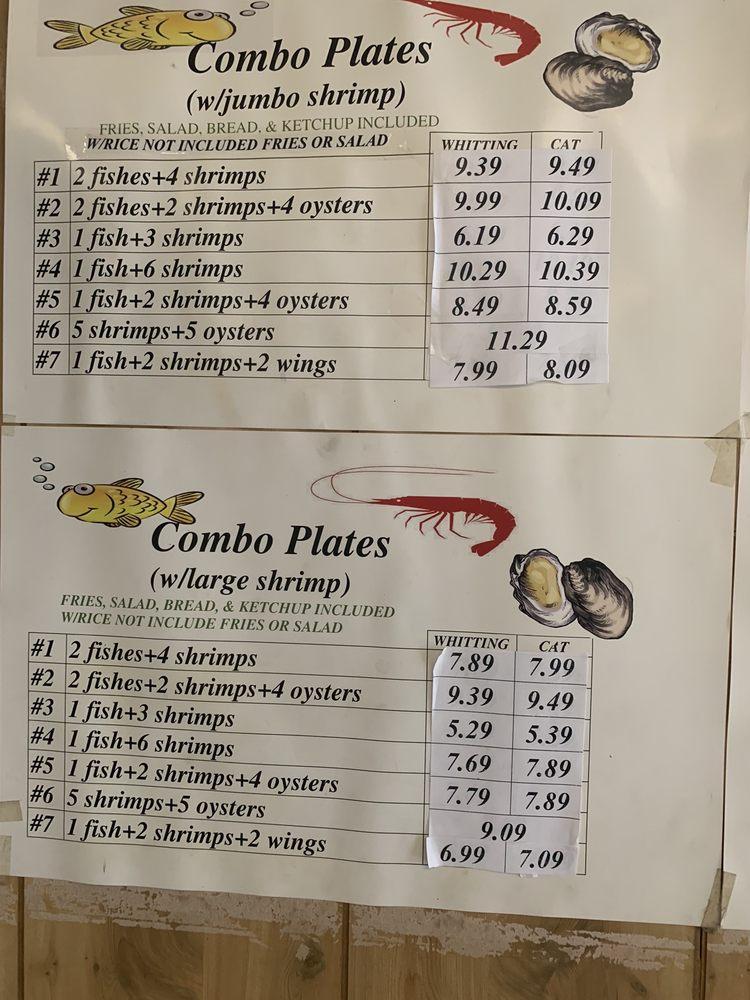 Combo Plates
(w/jumbo shrimp)
FRIES, SALAD, BREAD, & KETCHUP INCLUDED
W/RICE NOT INCLUDED FRIES OR SALAD
WHITTING CAT
#1 2 fishes+4 shrimps 9.39 9.49
#2 2 fishes+2 shrimps+4 oysters 9.99 10.09
#3 1 fish+3 shrimps 6.19 6.29
#4 1 fish+6 shrimps 10.29 10.39
#5 1 fish+2 shrimps+4 oysters 8.49 8.59
#6 5 shrimps+5 oysters 11.29
#7 1 fish+2 shrimps+2 wings 7.99 8.09
Combo Plates
(w/large shrimp)
FRIES, SALAD, BREAD, & KETCHUP INCLUDED
W/RICE NOT INCLUDE FRIES OR SALAD
WHITTING CAT
#1 2 fishes+4 shrimps 7.89 7.99
#2 2 fishes+2 shrimps+4 oysters 9.39 9.49
#3 1 fish+3 shrimps 5.29 5.39
#4 1 fish+6 shrimps 7.69 7.89
#5 1 fish+2 shrimps+4 oysters 7.79 7.89
#6 5 shrimps+5 oysters 9.09
#7 1 fish+2 shrimps+2 wings 6.99 7.09